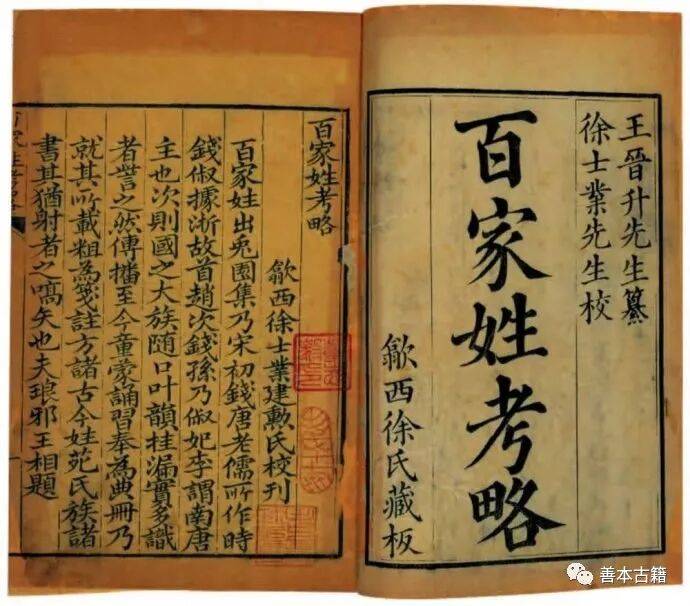 王晉升先生纂
徐士業先生校
百家姓考略
歙西徐氏藏板
百家姓考略
歙西徐士業建勲氏校刊
百家姓出兎園集乃宋初錢唐老儒所作時
錢俶據浙故首趙次錢孫乃俶妃李謂南唐
主也次則國之大族随口叶韻挂漏實多識
者訾之然傳播至今童蒙誦習奉為典冊乃
就其所載粗為箋註方諸古今姓苑氏族諸
書其猶射者之嚆矢也夫琅邪王相題
善本古籍